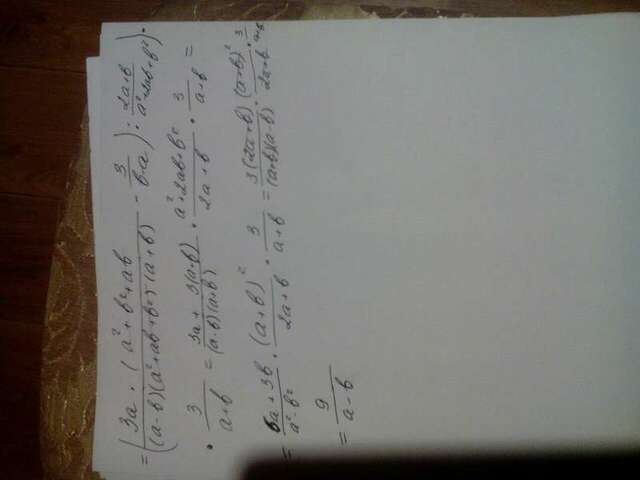 = (3a · (a² + b² + ab / (a-b)(a²+ab+b²)(a+b) - 3 / b-a) : 2a+b / a²+2ab+b²) ·
· 3 / a+b = 3a + 3(a+b) / (a-b)(a+b) · a²+2ab+b² / 2a+b · 3 / a+b =
= 6a+3b / a²-b² · (a+b)² / 2a+b · 3 / a+b = 3(2a+b) / (a+b)(a-b) · (a+b)² / 2a+b · 3 / a+b
= 9 / a-b